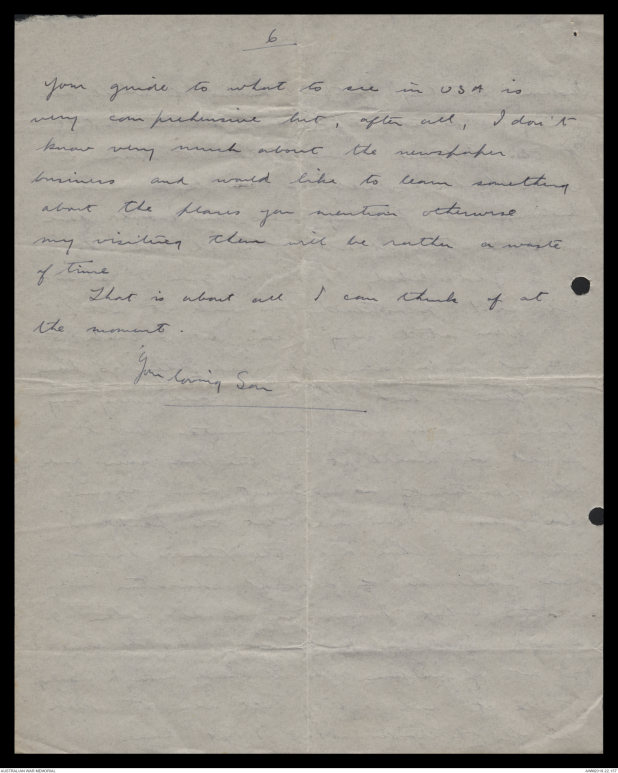 6
Your guide to what to see in USA is
very comprehensive but, after all, I don't
know very much about the newspaper
business and would like to learn something
about the places you mention otherwise
my visiting them will be rather a waste
of time
That is about all I can think of at
the moment.
Your loving Son
AUSTRALIAN WAR MEMORIAL